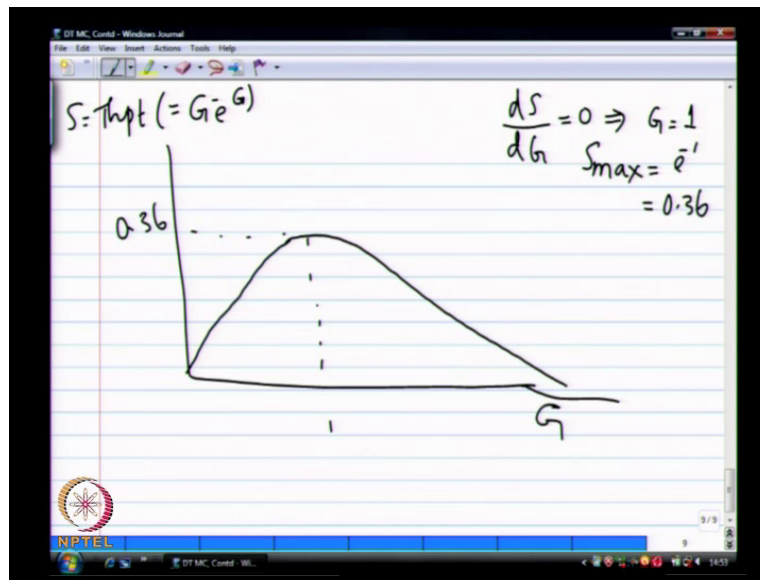 DT MC, Contd - Windows Journal
File Edit View Insert Actions Tools Help
S = Thpt (= G e^-G)
dS/dG = 0 ⇒ G = 1
Smax = e^-1
= 0.36
0.36
1
G
9/9
9
NPTEL
DT MC, Contd - Wi...
14:53